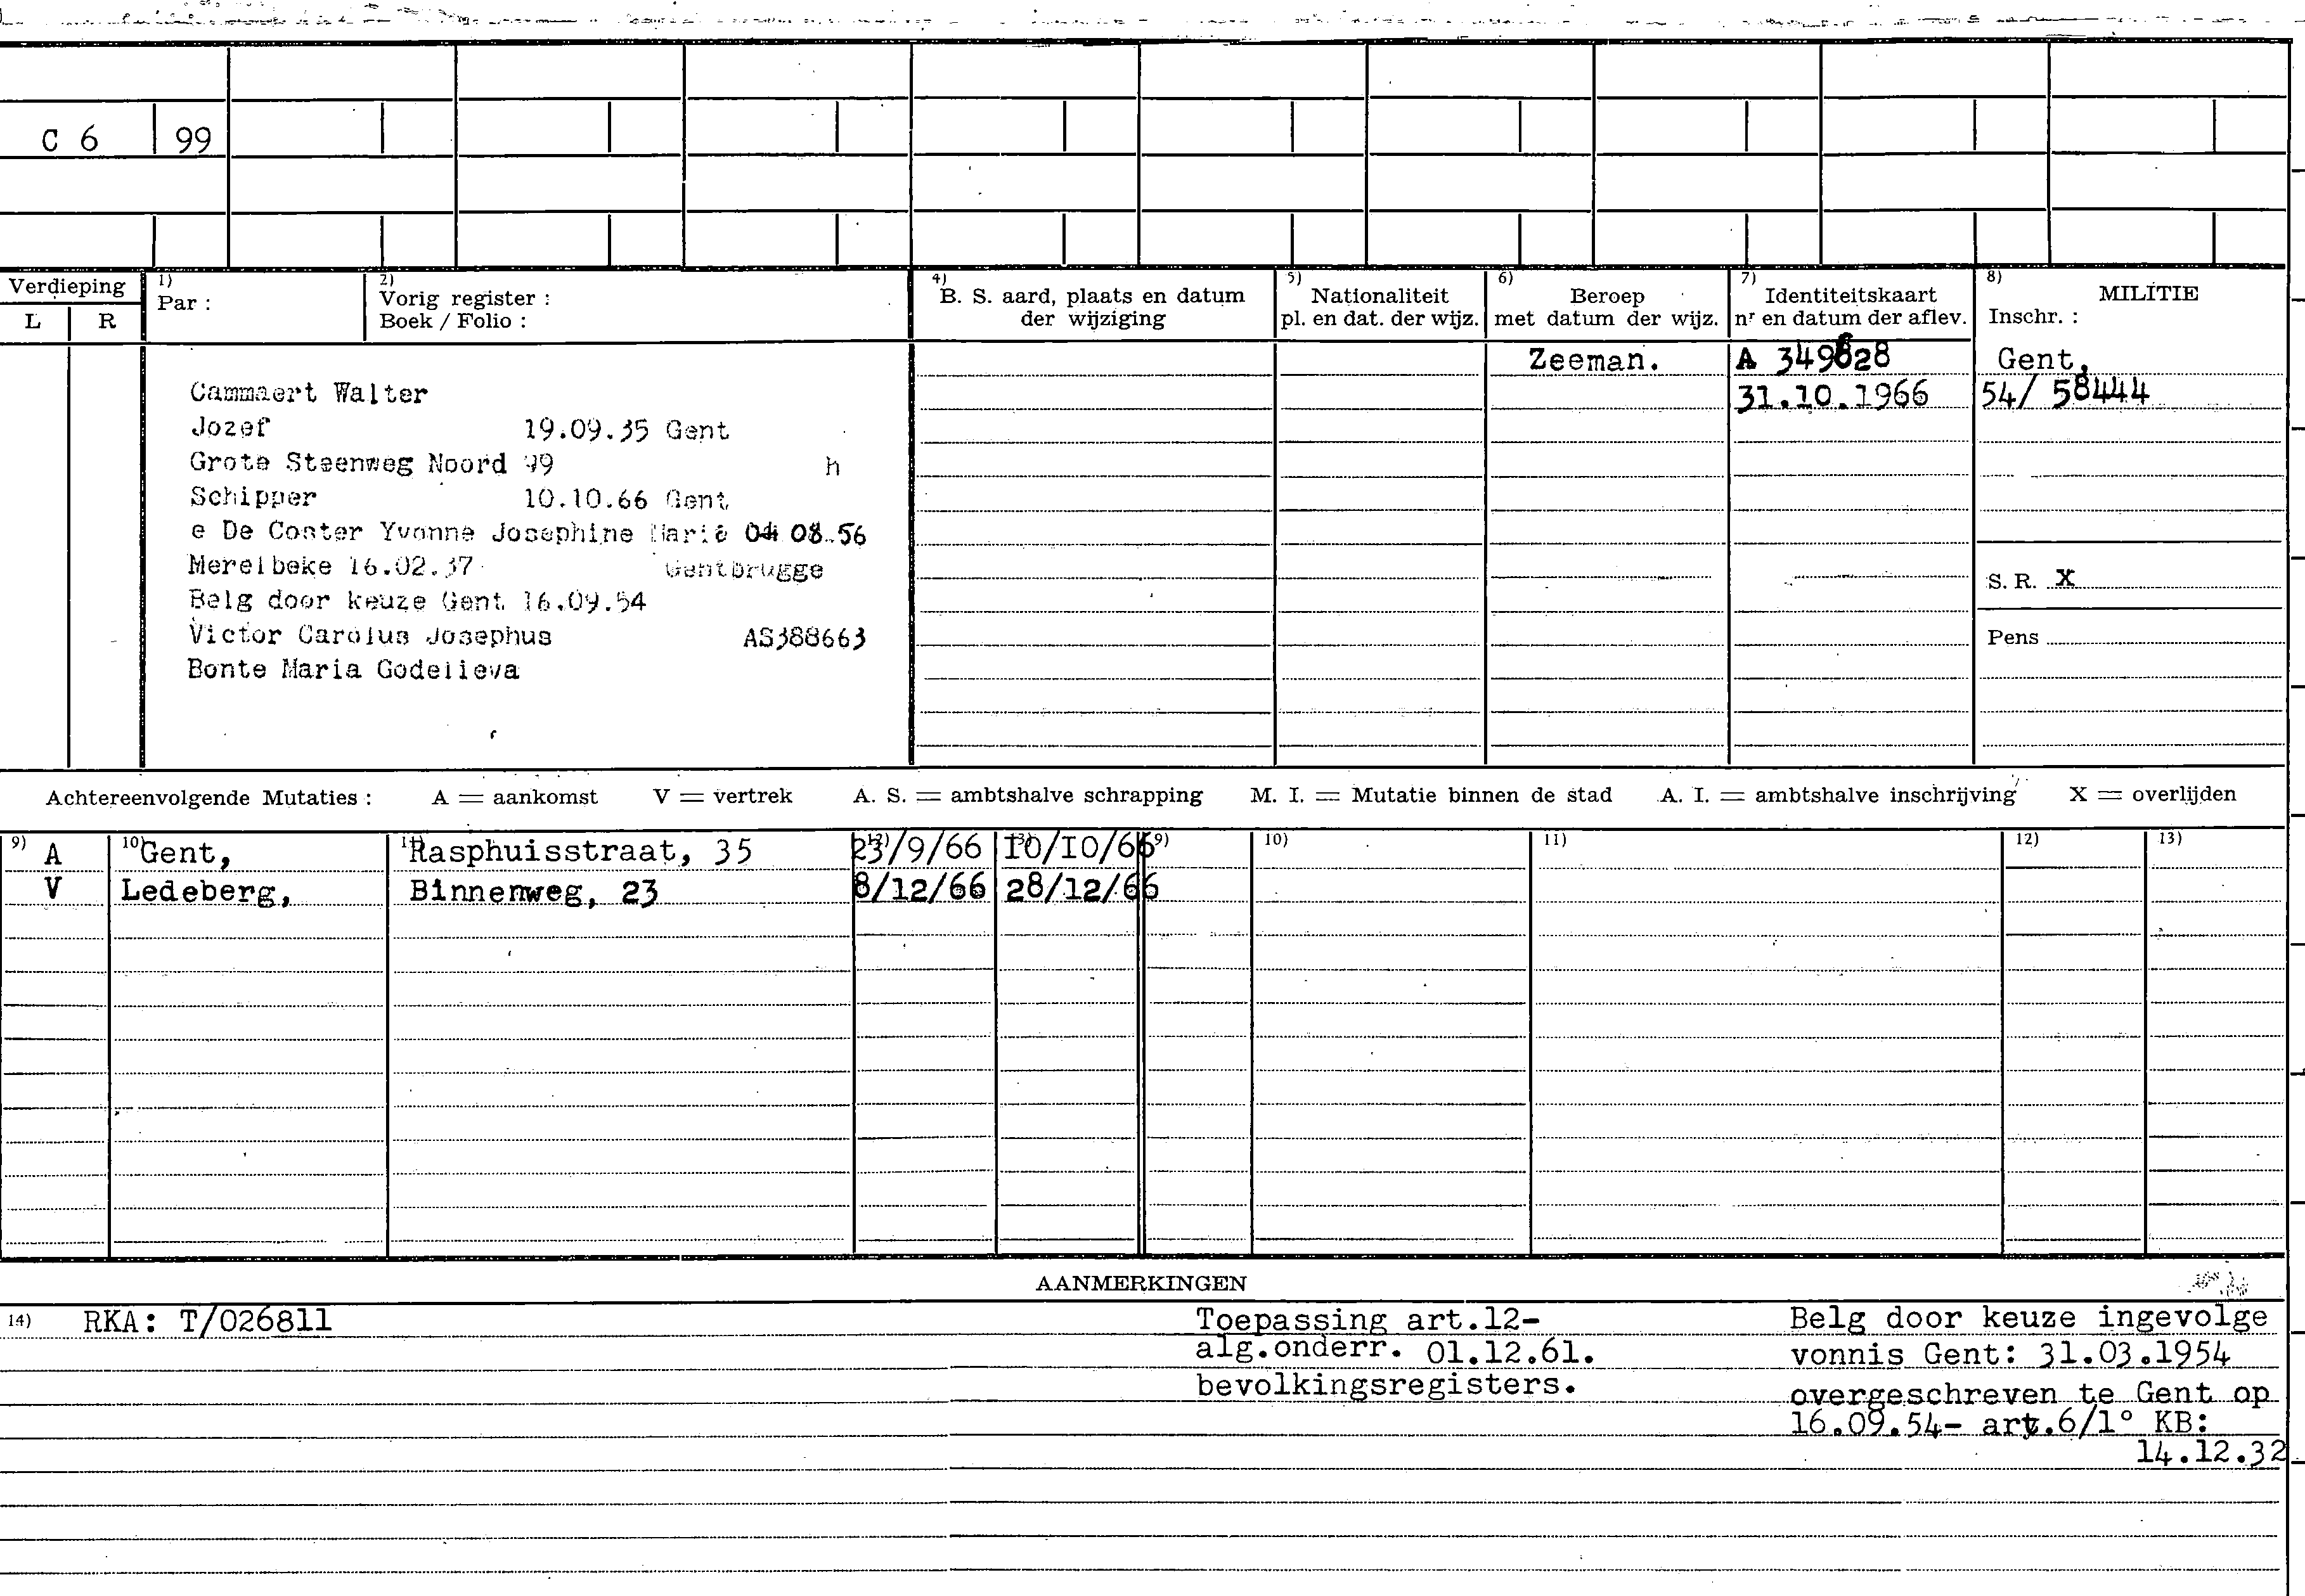 C 6 99
Verdieping
L R
1)
Par :
2)
Vorig register :
Boek / Folio :
4)
B. S. aard, plaats en datum
der wijziging
5)
Nationaliteit
pl. en dat. der wijz.
6)
Beroep
met datum der wijz.
7)
Identiteitskaart
nr en datum der aflev.
8)
MILITIE
Inschr. :
Cammaert Walter
Jozef 19.09.35 Gent
Grote Steenweg Noord 99 h
Schipper 10.10.66 Gent
e De Coster Yvonne Josephine Marie 04 08.56
Merelbeke 16.02.37 Gentbrugge
Belg door keuze Gent 16.09.54
Victor Carolus Josephus AS388663
Bonte Maria Godelieva
Zeeman.
A
31.10.1966
Gent,
54/ 58444
S. R. X
Pens
Achtereenvolgende Mutaties : A = aankomst V = vertrek A. S. = ambtshalve schrapping M. I. = Mutatie binnen de stad A. I. = ambtshalve inschrijving X = overlijden
9) 10) 11) 12) 13) 9) 10) 11) 12) 13)
A Gent, Rasphuisstraat, 35 23/9/66 10/10/66
V Ledeberg, Binnenweg, 23 8/12/66 28/12/66
AANMERKINGEN
14) RKA: T/026811
Toepassing art.12-
alg.onderr. 01.12.61.
bevolkingsregisters.
Belg door keuze ingevolge
vonnis Gent: 31.03.1954
overgeschreven te Gent op
16.09.54- art.6/1° KB:
14.12.32